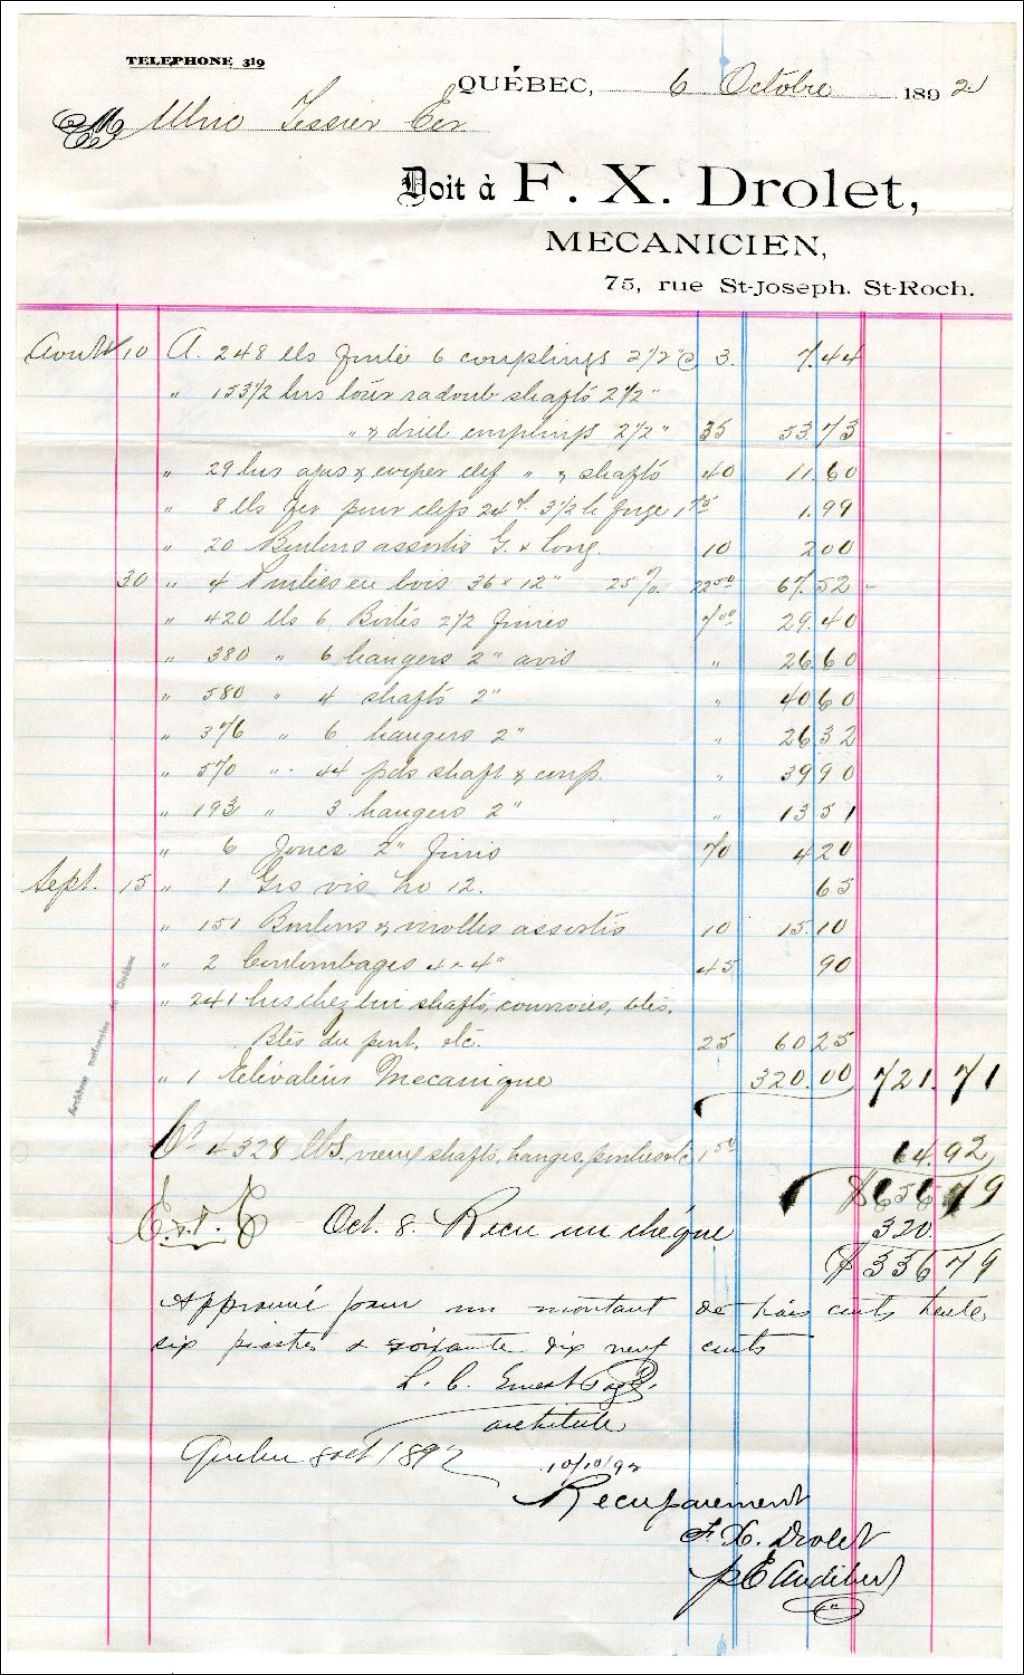 TELEPHONE 319
QUÉBEC, 6 Octobre 1892
M Ulric Tessier Ecr
Doit à F. X. Drolet,
MECANICIEN,
75, rue St-Joseph. St-Roch.
Aoult 10 A. 248 lls 6 couplings 2 1/2" @ 3. 7.44
" 153 1/2 hrs tour radoub shafts 2 1/2"
" & drill couplings 2 1/2" 35 53.73
" 29 hrs ajus & clef " & shafts 40 11.60
" 8 lls fer pour clefs 24 3 1/2 h forge 1.99
" 20 Boulons assortis G. & Long. 10 2 00
30 " 4 Poulies en bois 36 x 12" 25 %. 22 50 67.52
" 420 lls 6 Boites 2 1/2 finies 7 00 29.40
" 380 " 6 hangers 2" avis " 26 60
" 580 " 4 shafts 2" " 40 60
" 376 " 6 hangers 2" " 26 32
" 570 " 44 pds shaft & coup. " 39 90
" 193 " 3 hangers 2" " 13 51
" 6 Joncs 2" finis 70 4 20
Sept. 15 " 1 Grs vis No 12. 65
" 151 Boulons & virolles assortis 10 15.10
" 2 4 x 4" 45 90
" 241 hrs chez lui shafts, courroies,
du pont, etc. 25 60 25
" 1 Elévateur Mecanique 320.00 721.71
4328 lbs. vieux shafts, hangers, poulies 1 50 64.92
$656 79
E. & O. E Oct. 8. Recu un chéque 320.
$336 79
Approuvé pour un montant de trois cents trente
six piastres & soixante dix neuf cents
L. C. Ernest Pagé.
architecte
Quebec 8 oct 1892
10/10/92
Recu paiement
F. X. Drolet
p E Audibert
Archives nationales du Québec